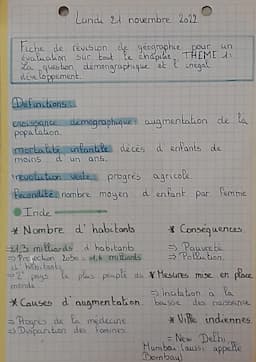 Lundi 21 novembre 2022
Fiche de révision de géographie pour un
évaluation sur tout le chapitre THEME 1:
La question démographique et l'inégal
développement.
Définitions:
croissance démographique: augmentation de la
population.
mortalité infantile: décès d'enfants de
moins d'un ans.
révolution verte: progrès agricole
fécondité: nombre moyen d'enfant par femme
Inde
* Nombre d'habitants
1,3 milliards d'habitants
⇒ Projection 2050 = 1,6 milliards
d'habitants
⇒ 2e pays le plus peuplé du
monde
* Causes d'augmentation
⇒ Progrès de la médecine
⇒ Disparition des famines
* Conséquences
⇒ Pauvreté
⇒ Pollution
* Mesures mise en place
⇒ incitation a la
baisse des naissance
* Ville indiennes
= New Delhi
Mumbai (aussi appelle
Bombay)